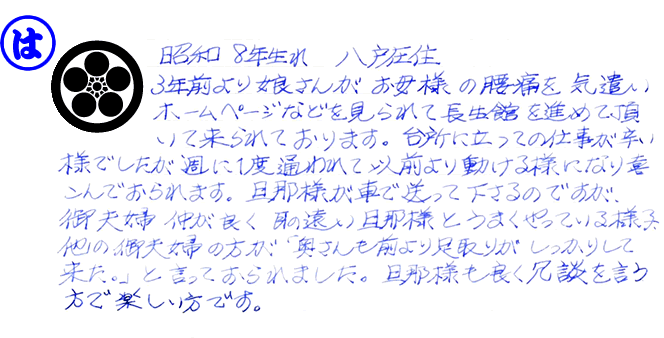 は
昭和8年生れ 八戸在住
3年前より娘さんが お母様の腰痛を気遣い
ホームページなどを見られて長生館を進めて頂
いて来られております。台所に立っての仕事が辛い
様でしたが週に1度通われて以前より動ける様になり喜
こんでおられます。旦那様が車で送って下さるのですが、
御夫婦仲が良く 耳の遠い旦那様とうまくやっている様子
他の御夫婦の方が「奥さんも前より足取りがしっかりして
来た。」と言っておられました。旦那様も良く冗談を言う
方で楽しい方です。